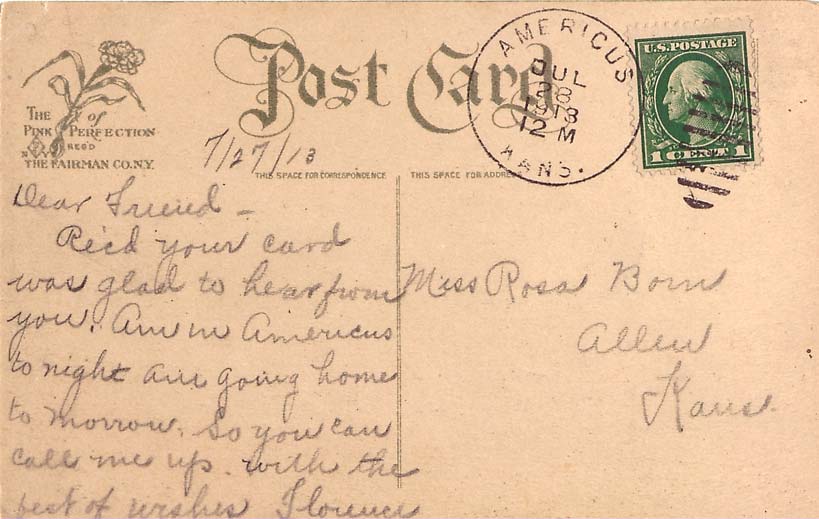 Post Card
AMERICUS
JUL
28
1913
12 M
KANS.
U.S. POSTAGE
1 CENT 1
THE
PINK of PERFECTION
REG'D
THE FAIRMAN CO. N.Y.
7/27/13
THIS SPACE FOR CORRESPONDENCE
THIS SPACE FOR ADDRESS
Dear Friend –
Rec'd your card
was glad to hear from
you. Am in Americus
to night am going home
to morrow. So you can
call me up. with the
best of wishes Florence
Miss Rosa Born
Allen
Kans.